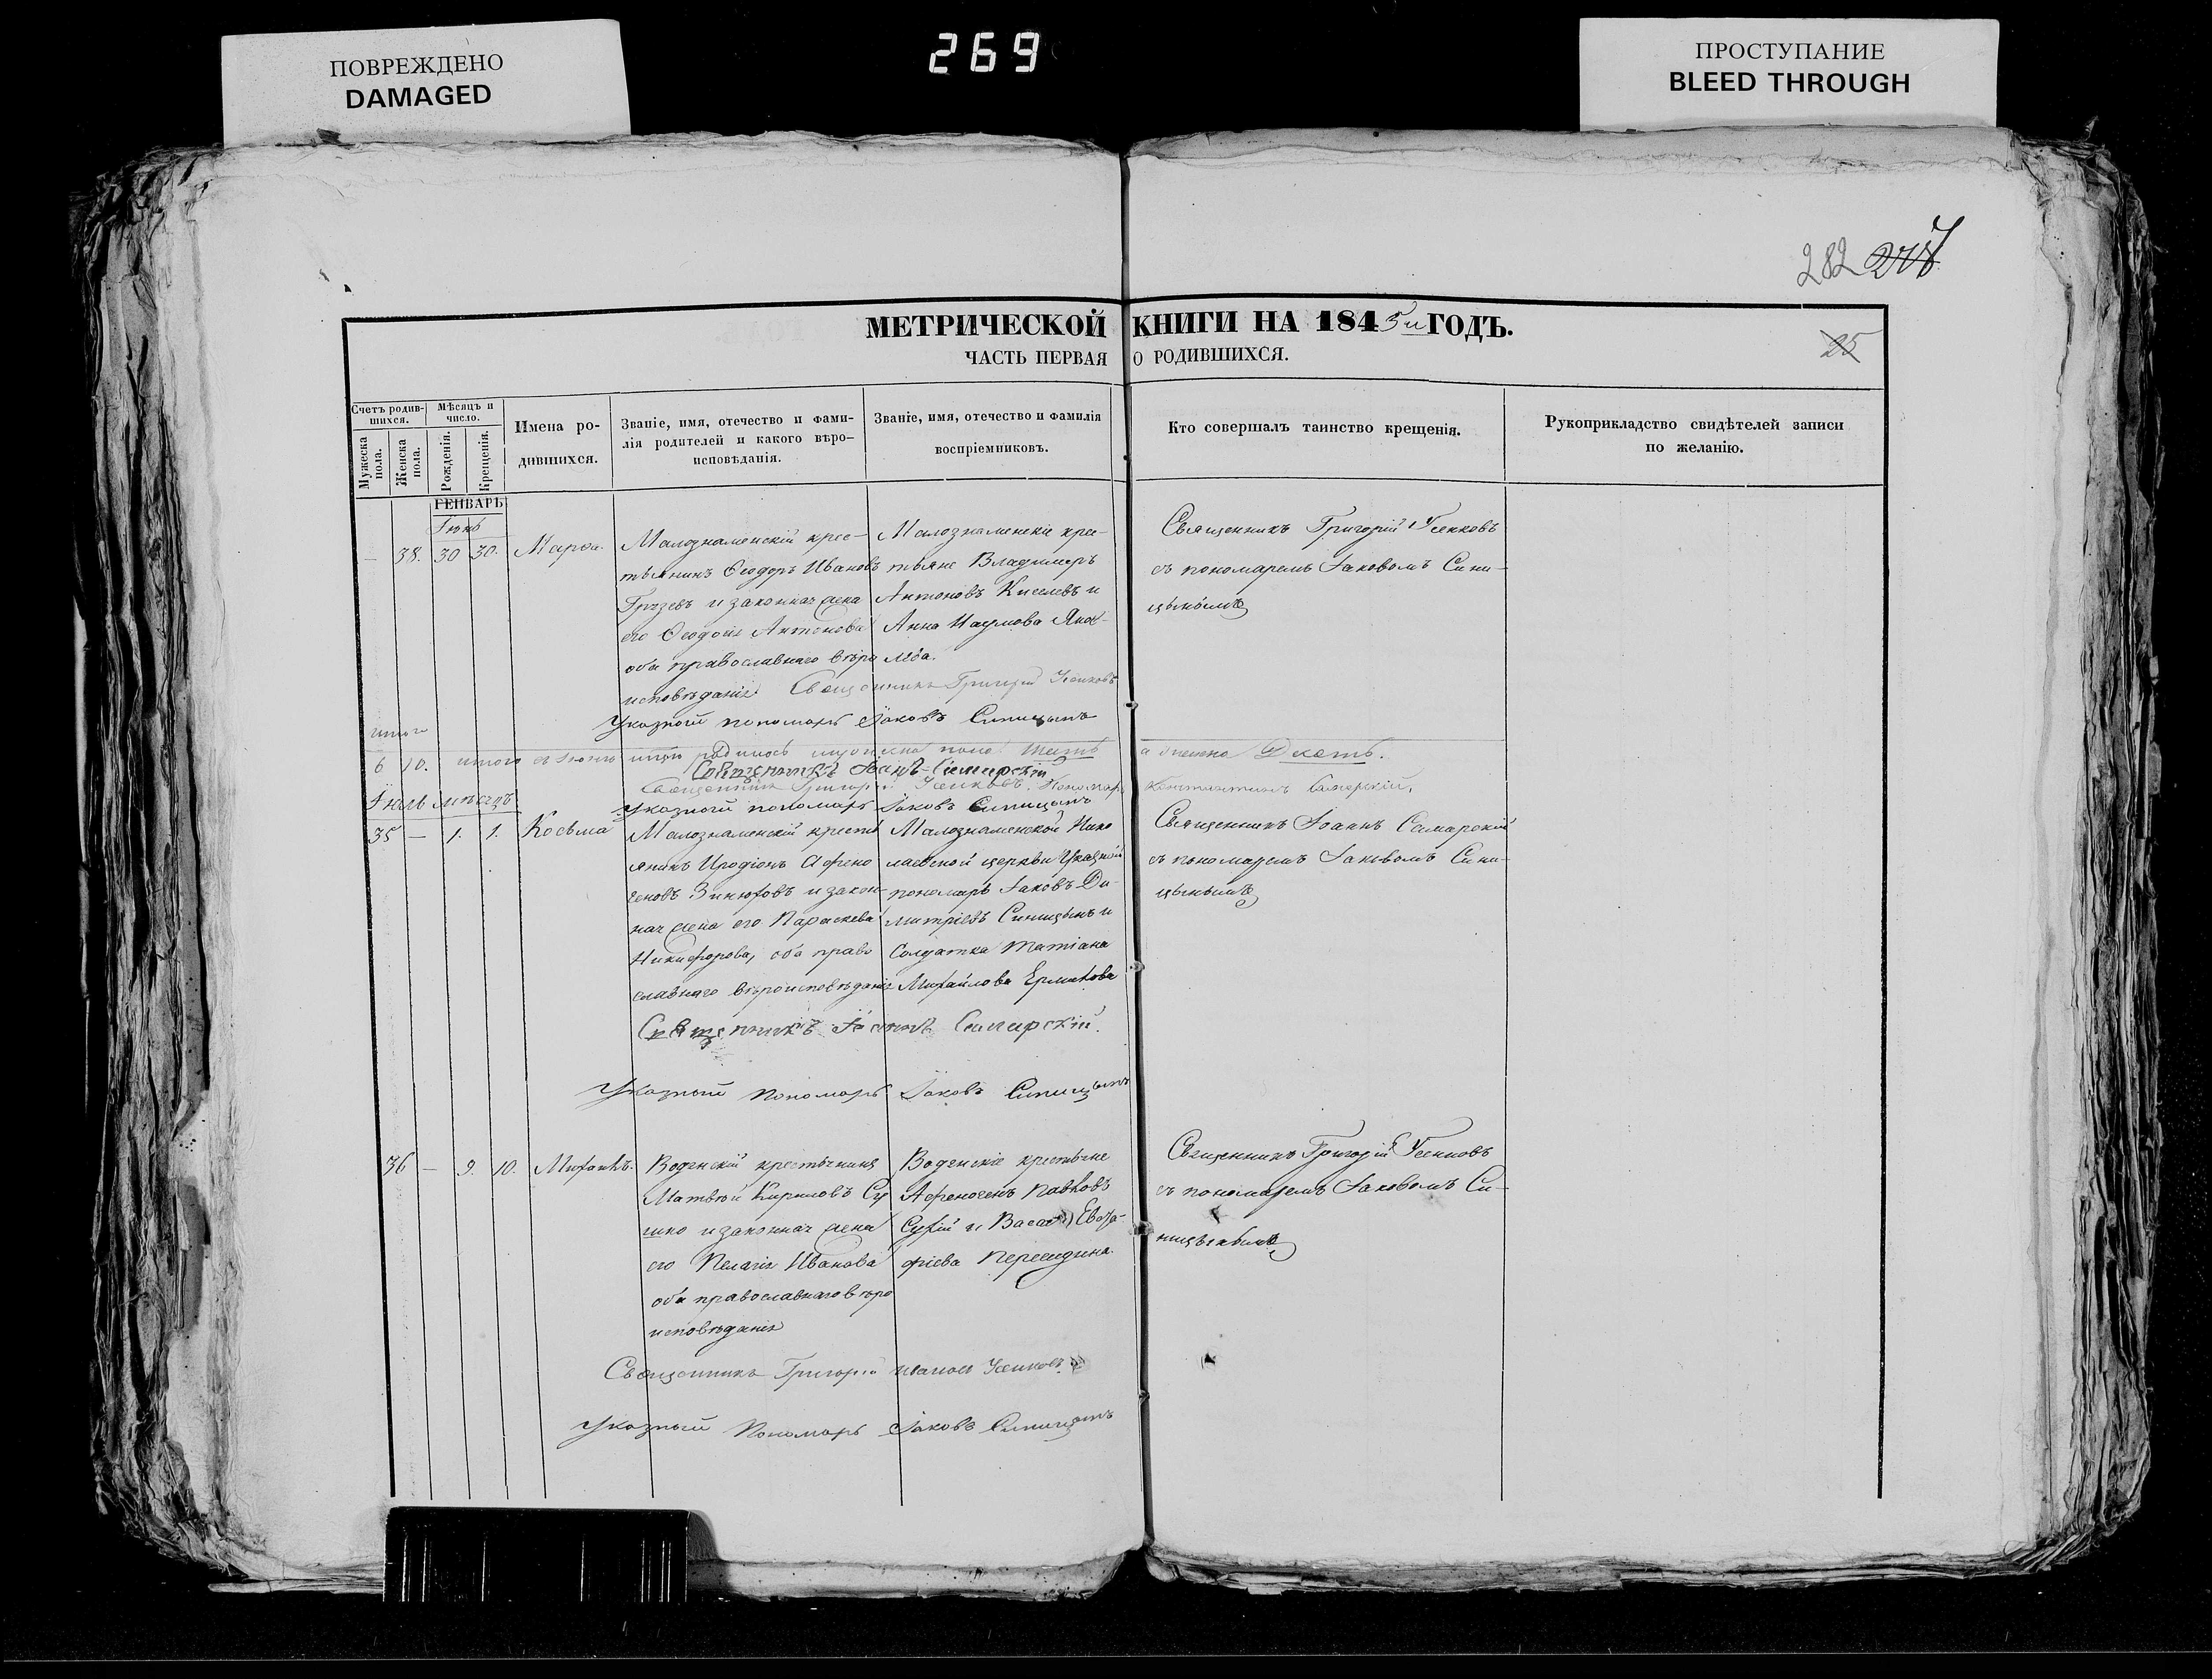 ПОВРЕЖДЕНО
DAMAGED
269
ПРОСТУПАНИЕ
BLEED THROUGH
282
МЕТРИЧЕСКОЙ КНИГИ НА 1845й ГОДЪ.
ЧАСТЬ ПЕРВАЯ О РОДИВШИХСЯ.
25
Счетъ родив-
шихся.
Мужеска пола.
Женска пола.
Мѣсяцъ и
число.
Рожденія.
Крещенія.
Имена ро-
дившихся.
Званіе, имя, отечество и фами-
лія родителей и какого вѣро-
исповѣданія.
Званіе, имя, отечество и фамилія
воспріемниковъ.
Кто совершалъ таинство крещенія.
Рукоприкладство свидѣтелей записи
по желанію.
ГЕНВАРЬ
Іюнь
— 38. 30 30. Марѳа.
Малознаменскій крес-
тьянинъ Ѳеодоръ Ивановъ
Грузевъ и законная жена
его Ѳеодосія Антонова
оба православнаго вѣро
исповѣданія
Малознаменскіе крес-
тьяне Владимеръ
Антоновъ Киселевъ и
Анна Наумова Яков-
лева.
Священникъ Григорій Усенковъ
съ пономаремъ Іаковомъ Сини-
цынымъ
Священникъ Григорій Усенковъ
Указной пономарь Іаковъ Синицынъ
итого
6 10. итого въ Іюнѣ родилось мужеска пола шесть а женска Десять.
Священникъ Іоаннъ Самарскій
Священникъ Григорій Усенковъ. Пономарь Константинъ Самарскій.
Указной пономарь Іаковъ Синицынъ
Іюль мѣсяцъ
35 — 1. 1. Косьма
Малознаменскій кресть
янинъ Иродіонъ Афено
геновъ Зинюховъ и закон-
ная жена его Параскева
Никифорова, оба право
славнаго вѣроисповѣданія
Малознаменской Нико
лаевской церкви Указной
пономарь Іаковъ Ди-
митріевъ Синицынъ и
Солдатка Татіана
Михайлова Ермакова
Священникъ Іоаннъ Самарскій
съ пономаремъ Іаковомъ Сини-
цынымъ
Священникъ Іоаннъ Самарскій.
Указной пономарь Іаковъ Синицынъ
36 — 9. 10. Михаилъ.
Воденскій крестьянинъ
Матвѣй Кириловъ Су
шко и законная жена
его Пелагія Иванова
оба православнаго вѣро
исповѣданія
Воденскіе крестьяне
Афеногенъ Павловъ
Сухій и Васса Евста-
фіева
Священникъ Григорій Усенковъ
съ пономаремъ Іаковомъ Си-
ницынымъ
Священникъ Григорій Ивановъ Усенковъ
Указный Пономарь Іаковъ Синицынъ